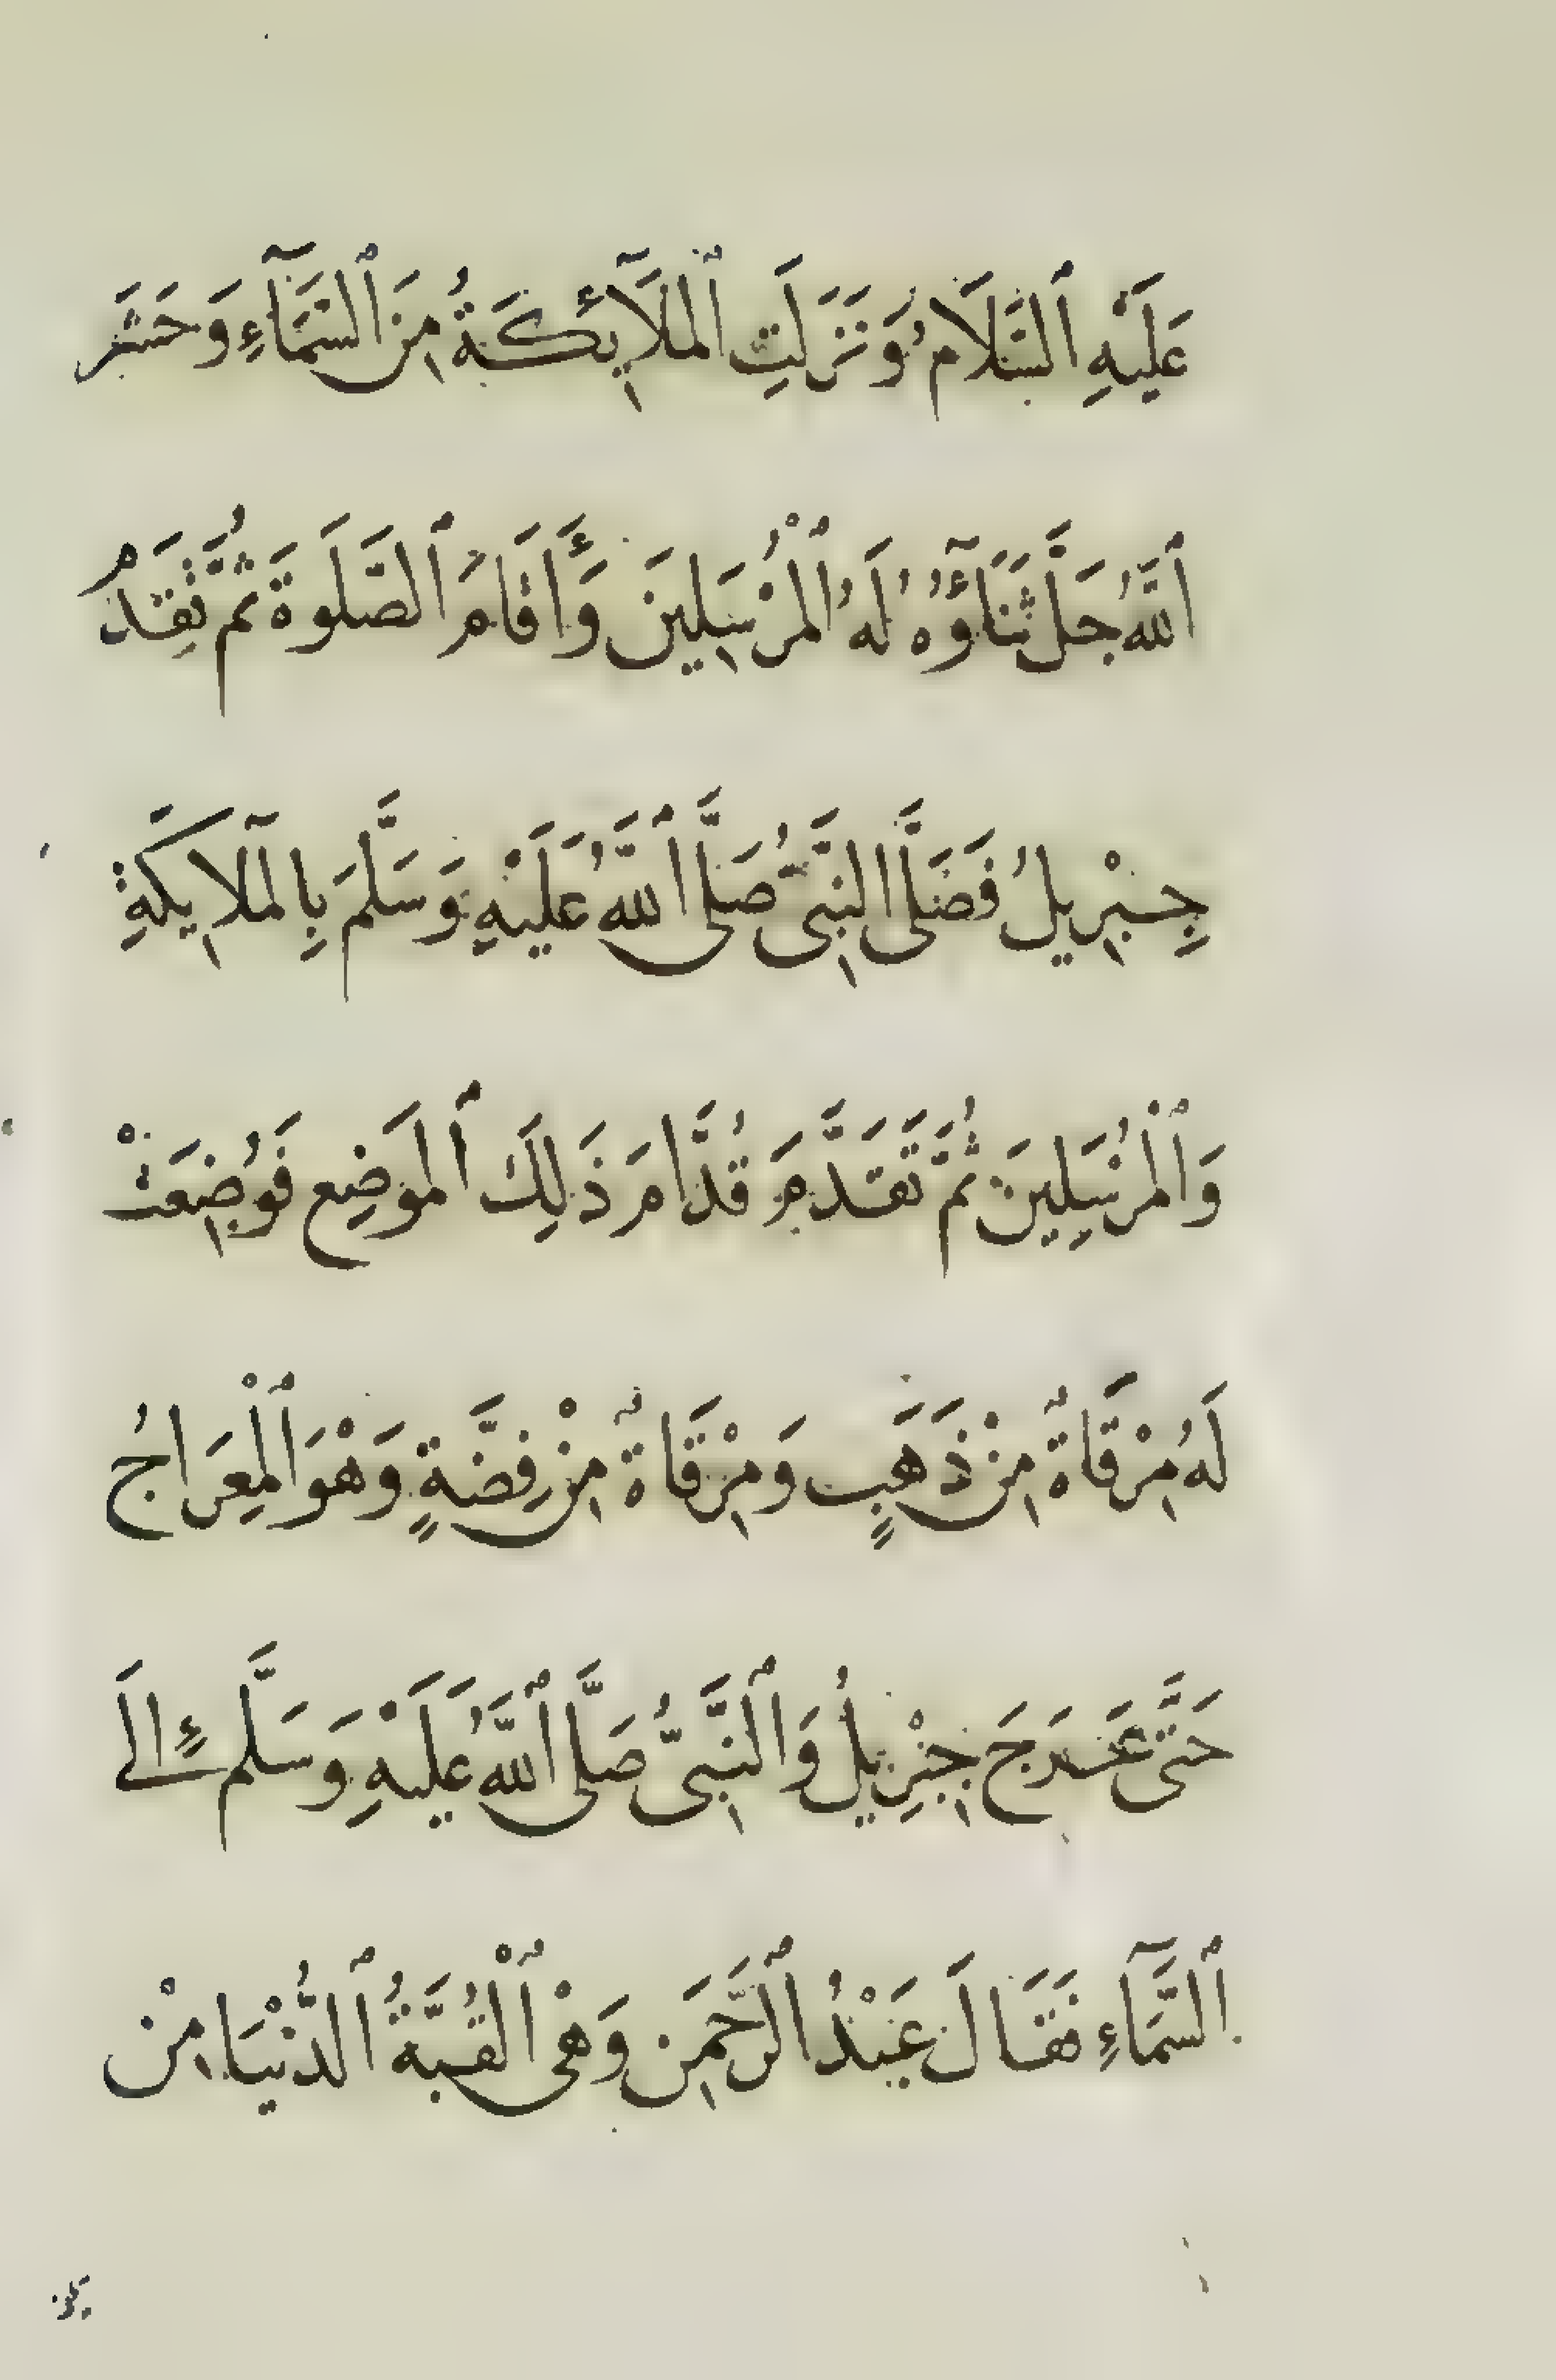 عَلَيْهِ ٱلسَّلَامُ وَنَزَلَتِ ٱلْمَلَآئِكَةُ مِنَ ٱلسَّمَآءِ وَحَشَرَ
ٱللَّهُ جَلَّ ثَنَآؤُهُ لَهُ ٱلْمُرْسَلِينَ وَأَقَامَ ٱلصَّلَوةَ ثُمَّ تَقَدَّمَ
جِبْرِيلُ فَصَلَّى النَّبِىُّ صَلَّى ٱللَّهُ عَلَيْهِ وَسَلَّمَ بِالمَلآيِكَةِ
وَٱلْمُرْسَلِينَ ثُمَّ تَقَدَّمَ قُدَّامَ ذَلِكَ ٱلمَوَضِعِ فَوُضِعَتْ
لَهُ مِرْقَاةٌ مِنْ ذَهَبٍ وَمِرْقَاةٌ مِنْ فِضَّةٍ وَهْوَ ٱلْمِعَرَاجُ
حَتَّى عَرَجَ جِبْرِيلُ وَٱلنَّبِىُّ صَلَّى ٱللَّهُ عَلَيْهِ وَسَلَّمَ إِلَى
ٱلسَّمَآءِ فَقَالَ عَبْدُ ٱلرَّحْمَنِ وَهْىَ ٱلْقُبَّةُ ٱلدُّنْيَا مِنْ